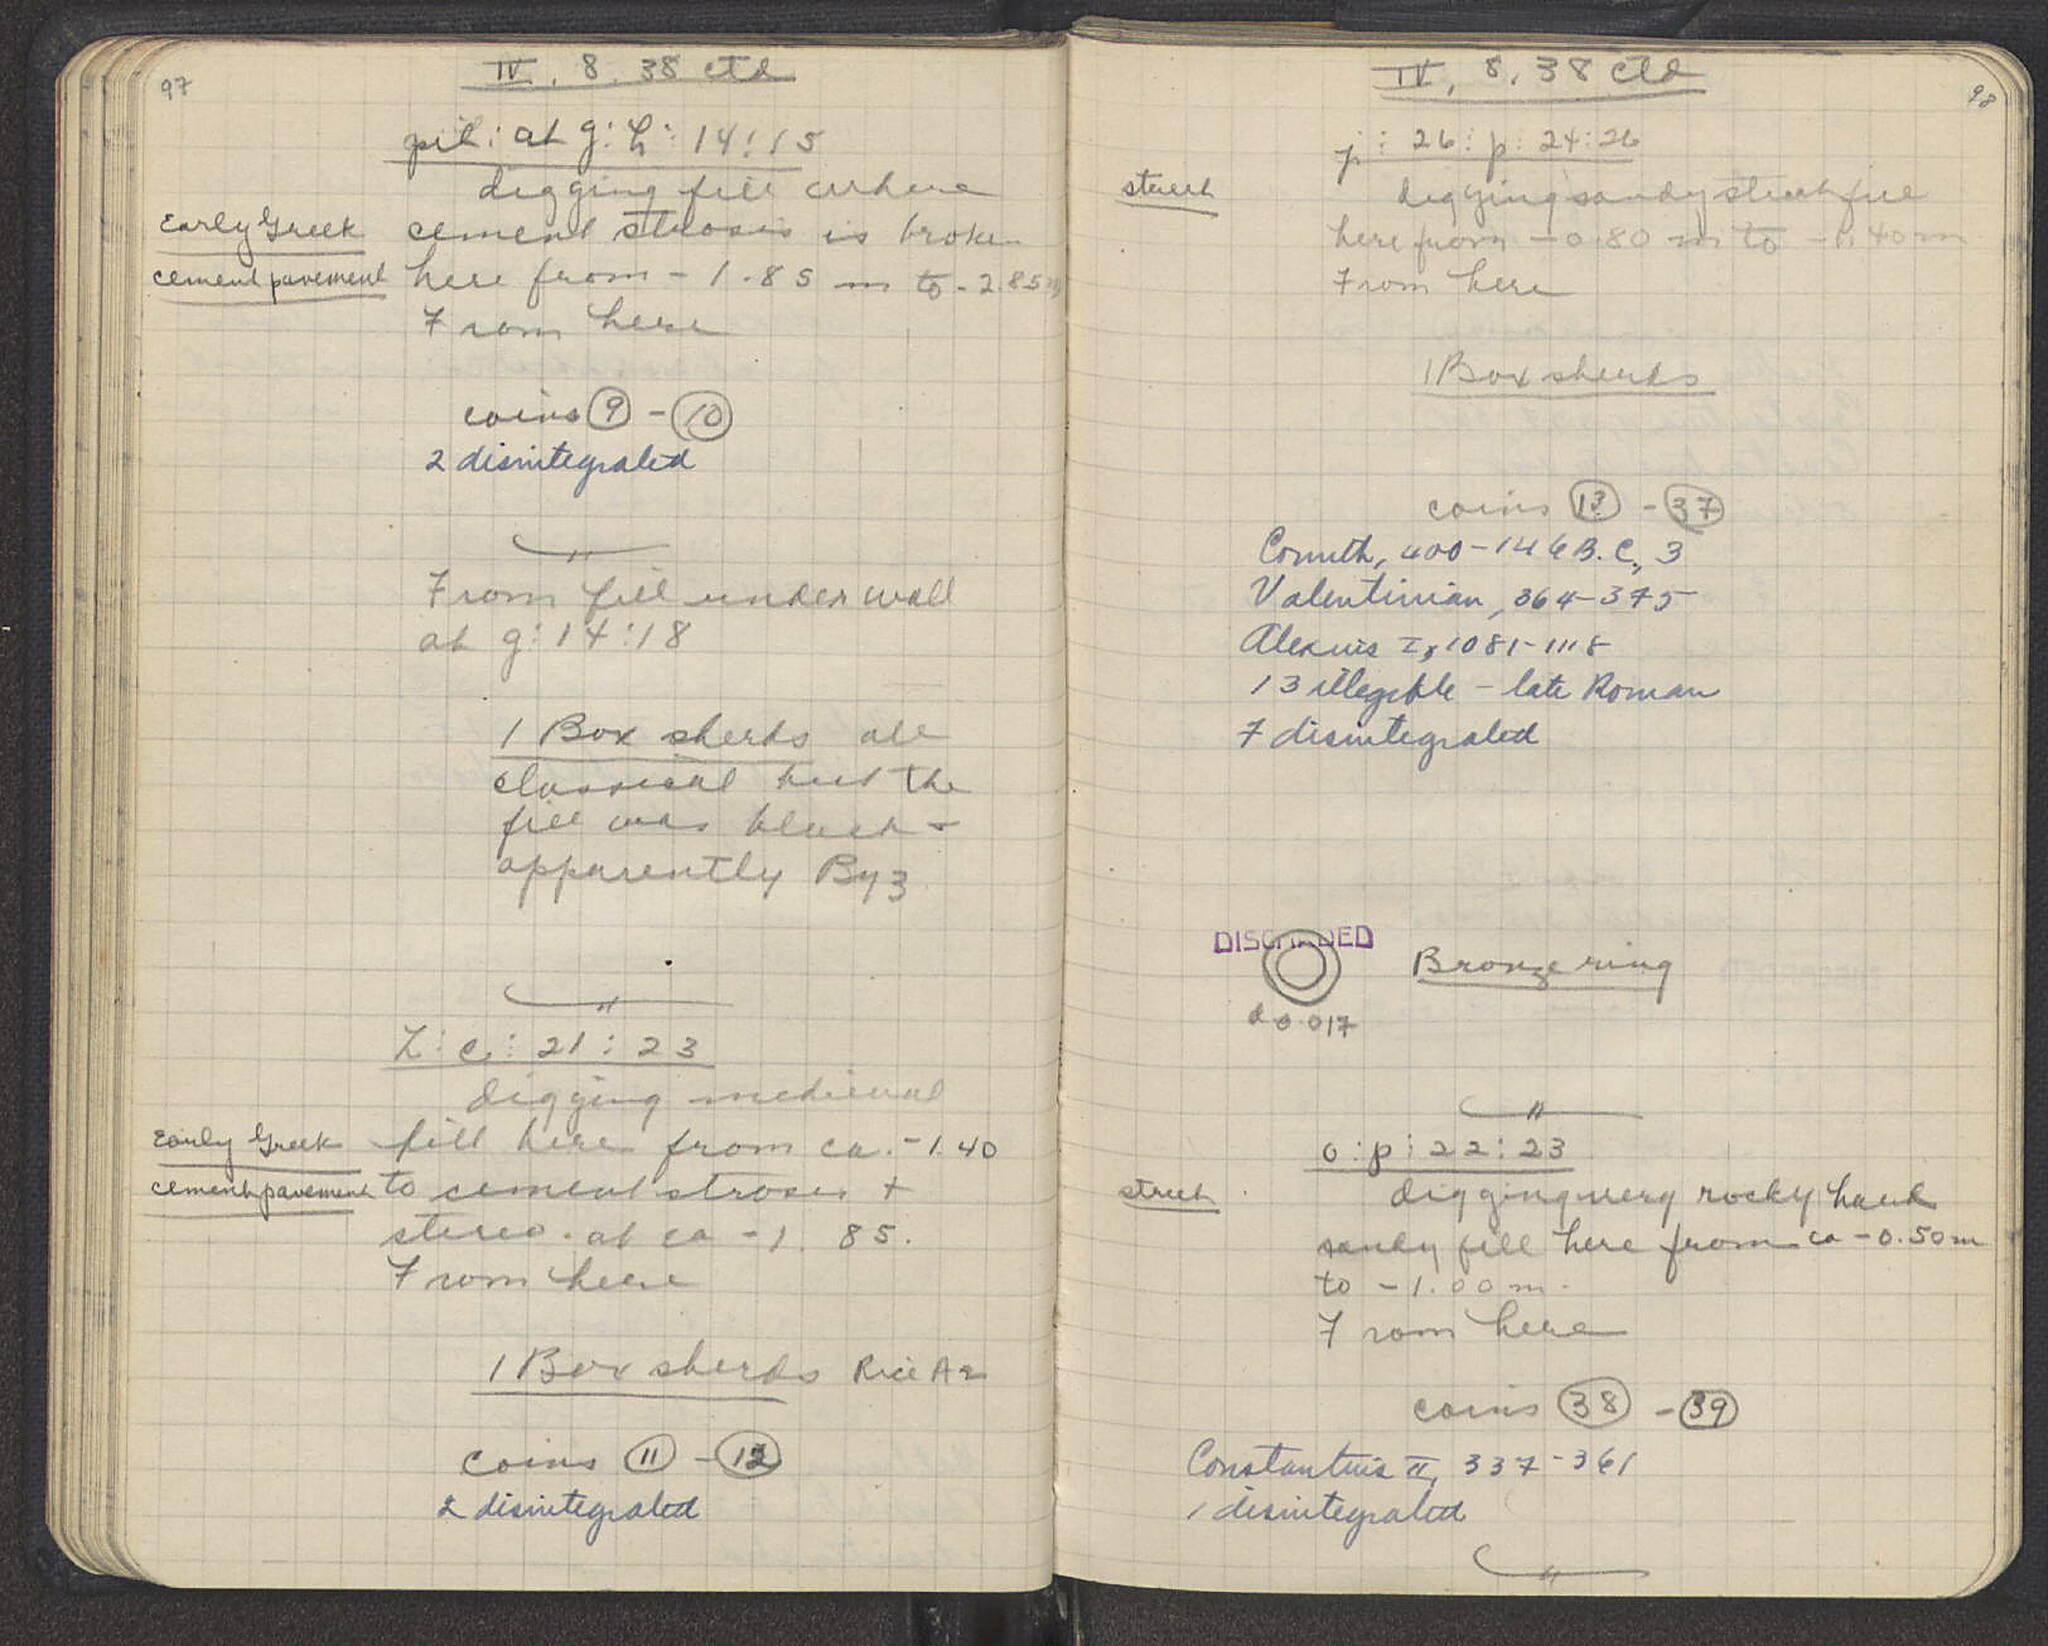 97
IV, 8, 38 ctd
pit: at g: h: 14:15
digging fill where
Early Greek
cement pavement
cement strosis is broken
here from - 1.85 m to - 2.85 m
From here
coins 9 - 10
2 disintegrated
"
From fill under wall
at g: 14:18
1 Box sherds all
classical but the
fill was black +
apparently Byz
"
Z: c: 21: 23
digging medieval
Early Greek
cement pavement
fill here from ca. - 1.40
to cement stroses +
stereo. at ca - 1. 85.
From here
1 Box sherds
coins 11 - 12
2 disintegrated
98
IV, 8, 38 ctd
j: 26: p: 24: 26
street
digging sandy street fill
here from - 0.80 m to - 1.40 m
From here
1 Box sherds
coins 13 - 37
Corinth, 400-146 B.C., 3
Valentinian, 364-375
Alexius I, 1081-1118
13 illegible - late Roman
7 disintegrated
DISCARDED
Bronze ring
d 0.017
"
o: p: 22: 23
street
digging very rocky hard
sandy fill here from ca - 0.50 m
to - 1.00 m.
From here
coins 38 - 39
Constantius II, 337-361
1 disintegrated
"